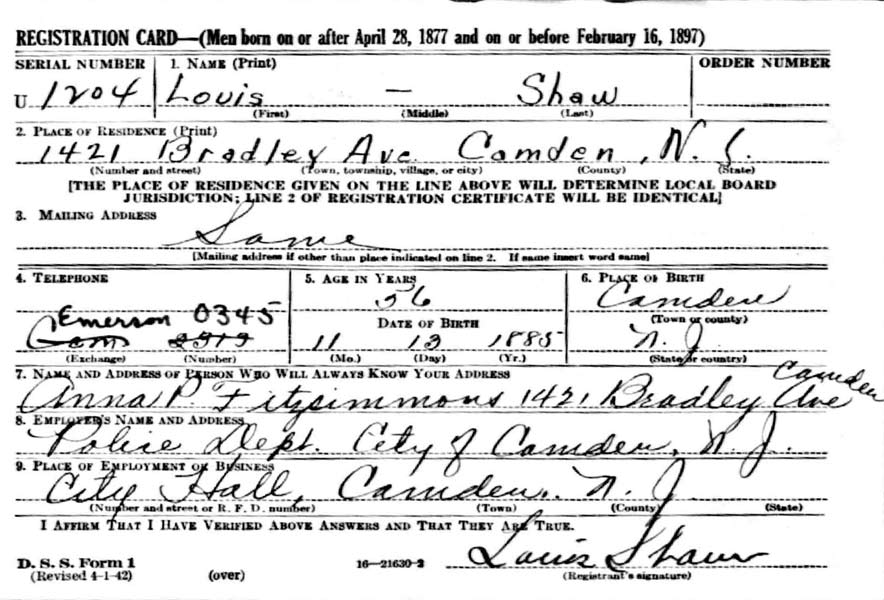 REGISTRATION CARD—(Men born on or after April 28, 1877 and on or before February 16, 1897)
SERIAL NUMBER 1. NAME (Print) ORDER NUMBER
U 1204 Louis — Shaw
(First) (Middle) (Last)
2. PLACE OF RESIDENCE (Print)
1421 Bradley Ave. Camden, N. J.
(Number and street) (Town, township, village, or city) (County) (State)
[THE PLACE OF RESIDENCE GIVEN ON THE LINE ABOVE WILL DETERMINE LOCAL BOARD
JURISDICTION; LINE 2 OF REGISTRATION CERTIFICATE WILL BE IDENTICAL]
3. MAILING ADDRESS
Same
[Mailing address if other than place indicated on line 2. If same insert word same]
4. TELEPHONE 5. AGE IN YEARS 6. PLACE OF BIRTH
56 Camden
Emerson 0345 (Town or county)
DATE OF BIRTH
Cam 11 13 1885 N. J.
(Exchange) (Number) (Mo.) (Day) (Yr.) (State or country)
7. NAME AND ADDRESS OF PERSON WHO WILL ALWAYS KNOW YOUR ADDRESS
Anna P. Fitzsimmons 1421 Bradley Ave Camden
8. EMPLOYER'S NAME AND ADDRESS
Police Dept. City of Camden, N. J.
9. PLACE OF EMPLOYMENT OR BUSINESS
City Hall, Camden, N. J.
(Number and street or R. F. D. number) (Town) (County) (State)
I AFFIRM THAT I HAVE VERIFIED ABOVE ANSWERS AND THAT THEY ARE TRUE.
Louis Shaw
D. S. S. Form 1 16—21630-2
(Revised 4-1-42) (over) (Registrant's signature)